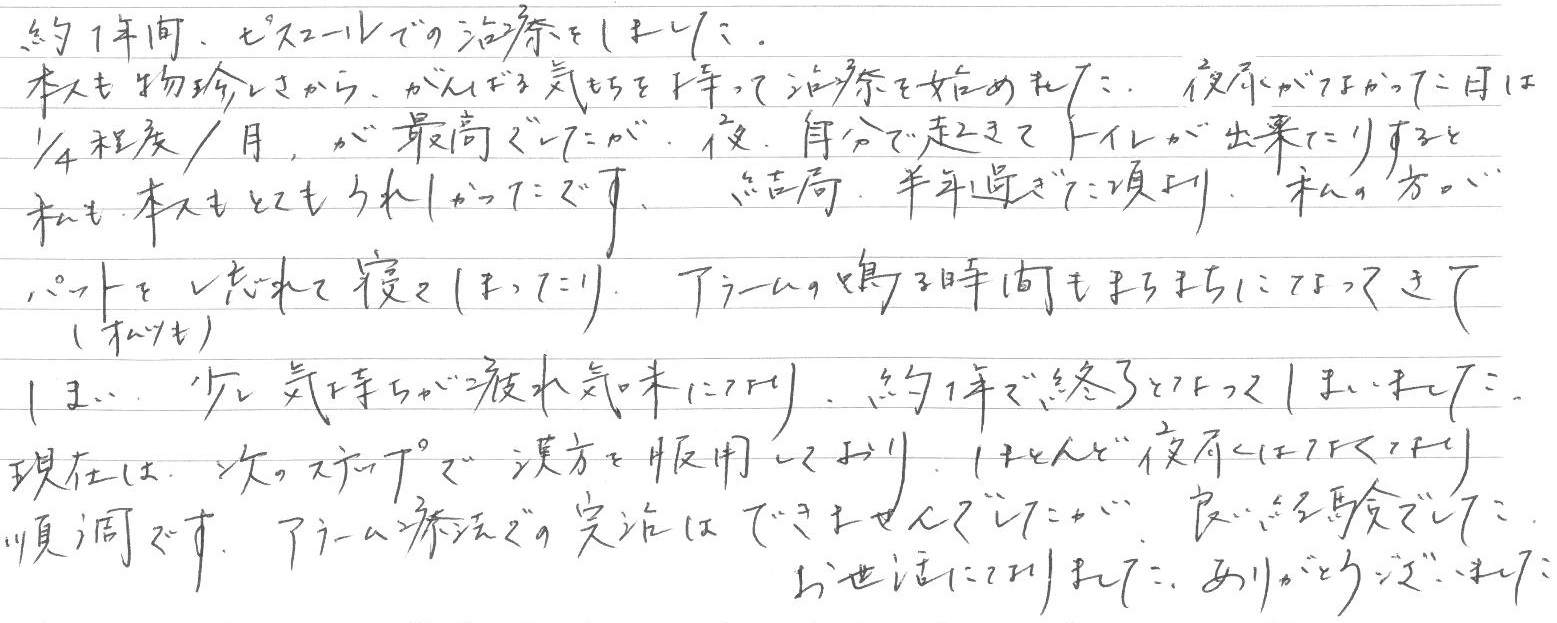 約1年間、ピスコールでの治療をしました。
本人も物珍しさから、がんばる気もちを持って治療を始めました。夜尿がなかった日は
1/4程度/月、が最高でしたが、夜、自分で起きてトイレが出来たりすると
私も、本人もとてもうれしかったです。 結局、半年過ぎた頃より、私の方が
パットをし忘れて寝てしまったり、アラームの鳴る時間もまちまちになってきて
(私も)
しまい、少し気持ちが疲れ気味になり、約1年で終了となってしまいました。
現在は、次のステップで漢方を服用しており、ほとんど夜尿はなくなり
順調です。アラーム療法での完治はできませんでしたが、良い経験でした。
お世話になりました、ありがとうございました